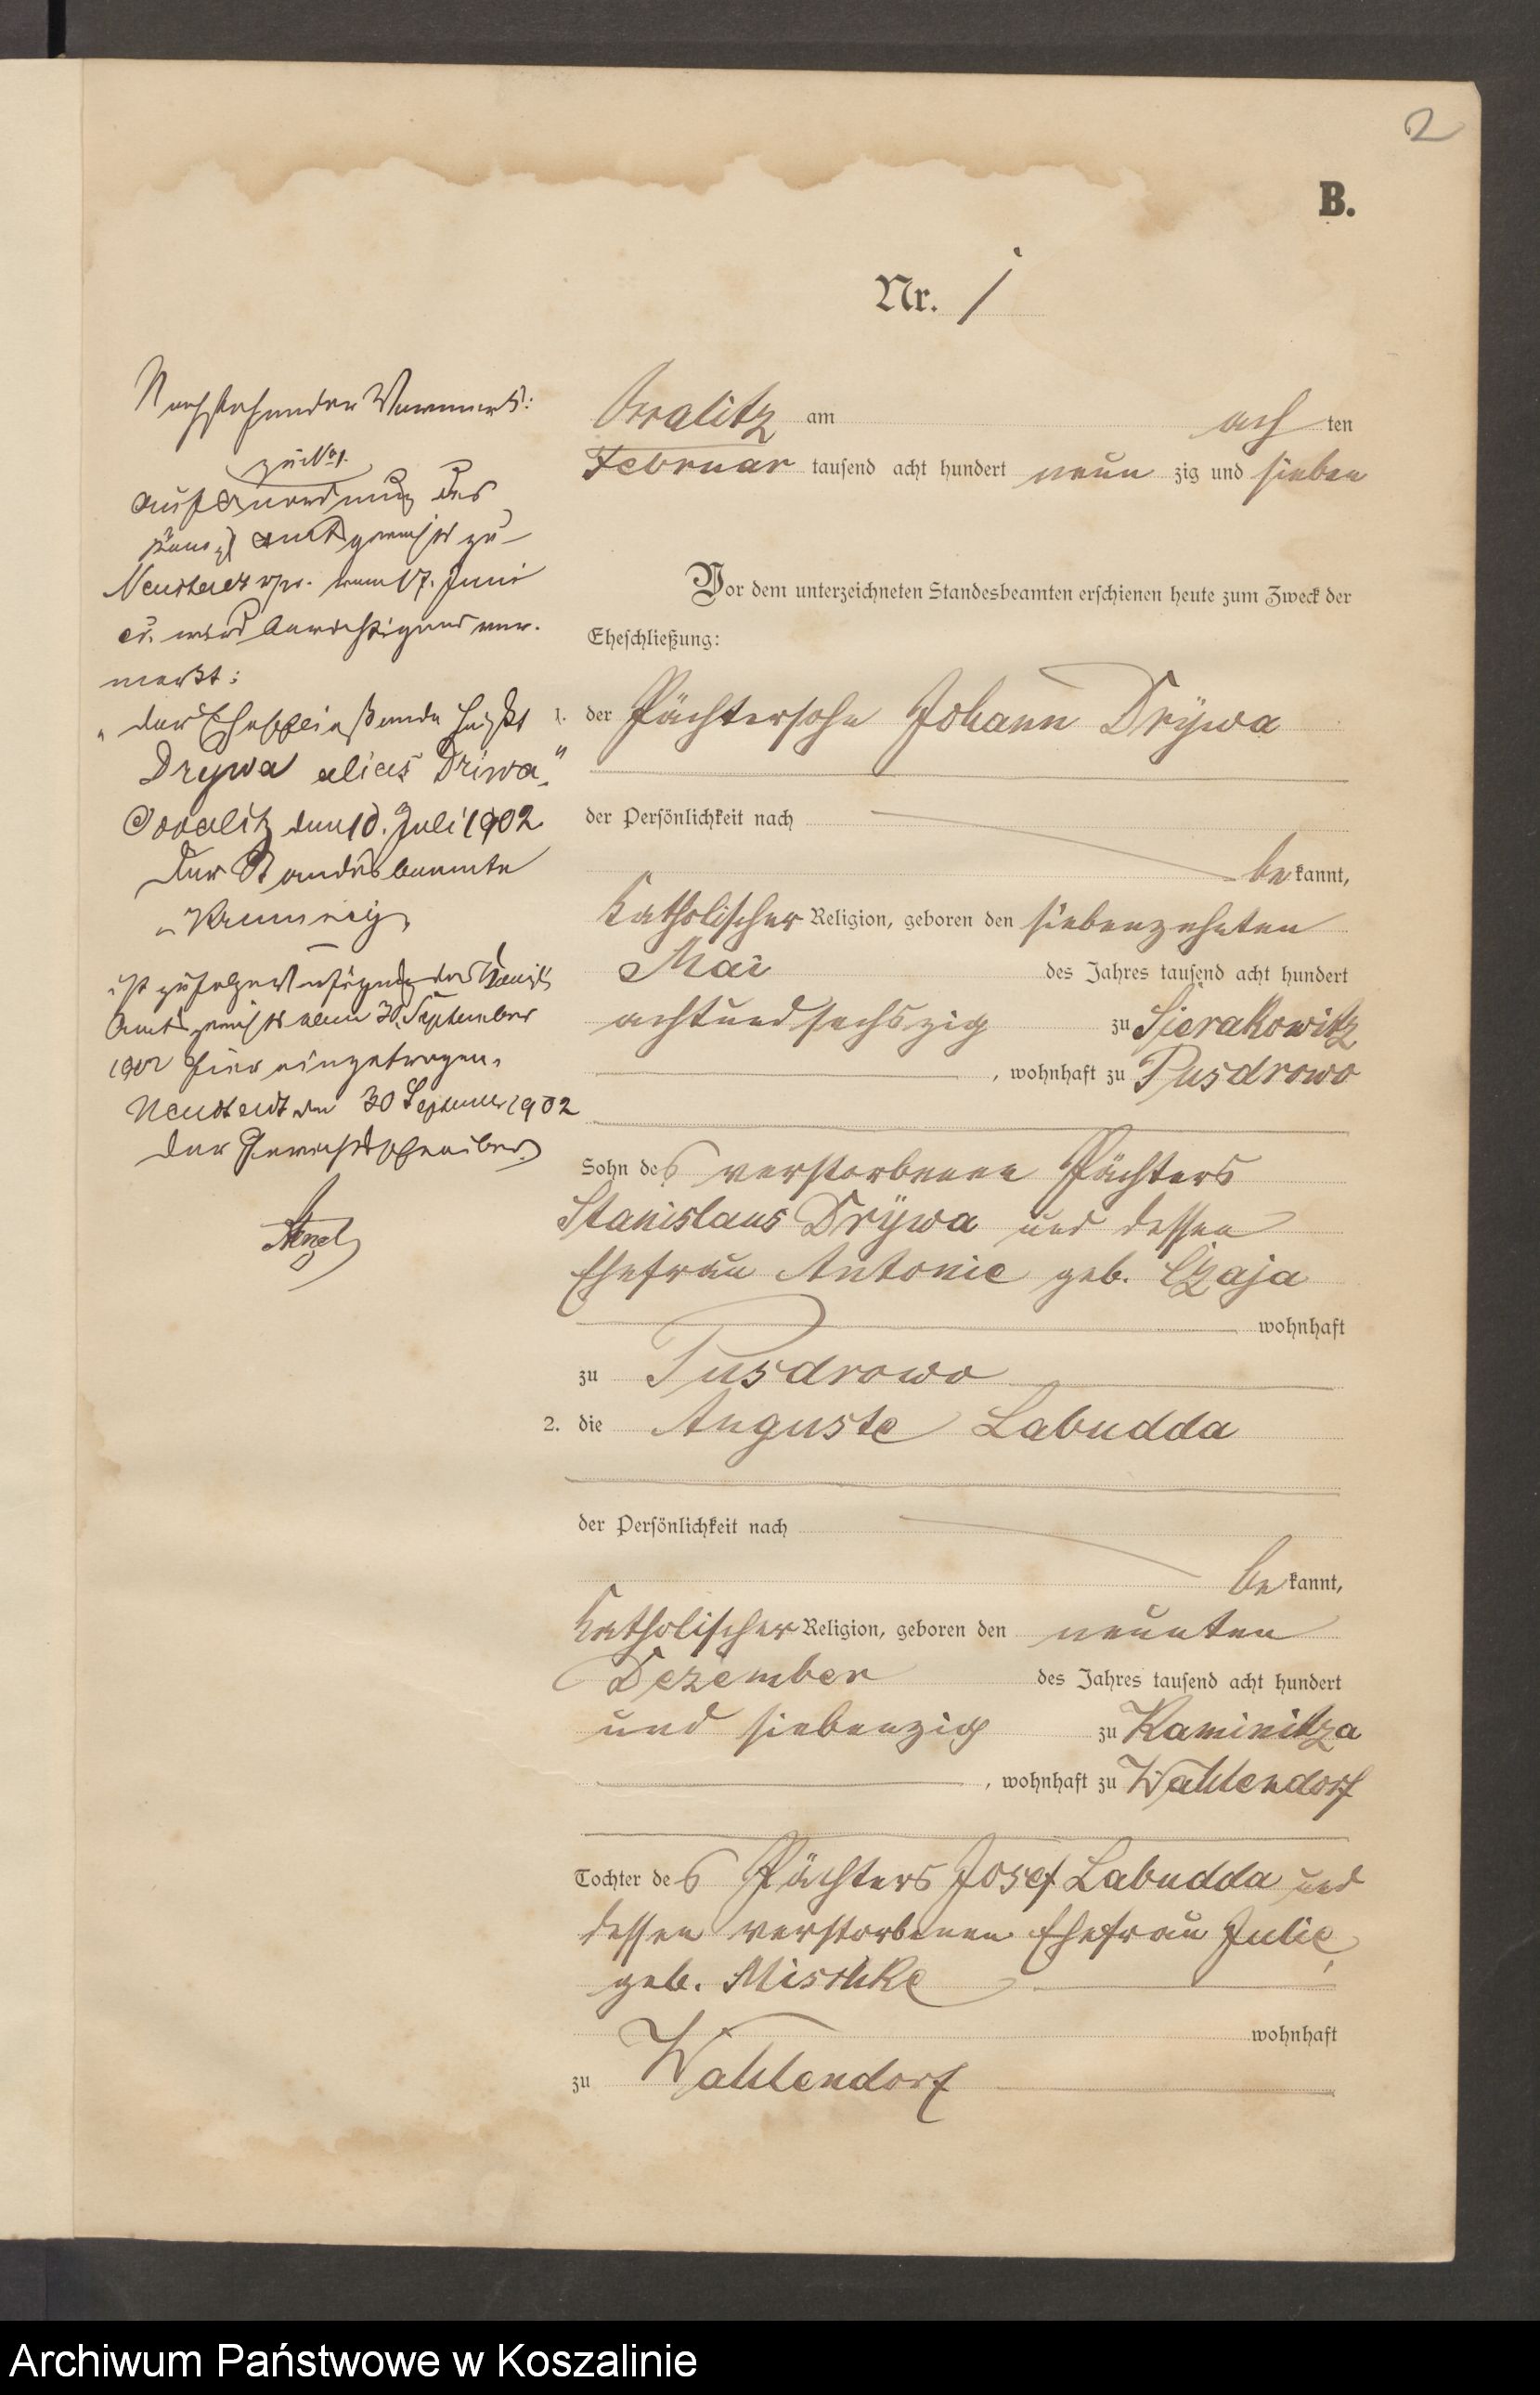 2
B.
Nr. 1
Nachstehender Vermerk:
zu No 1.
auf Anordnung des
Königl. Amtsgerichts zu
Neustadt Wpr. vom 17. Juni
cr. wird berichtigend ver-
merkt:
"der Eheschließende heißt
Drywa alias Driwa."
den 10. Juli 1902
Der Standesbeamte
ist zufolge Verfügung des Königl.
Amtsgerichts vom 30. September
1902 hier eingetragen.
Neustadt den 30 September 1902
Der Gerichtsschreiber
am ach ten
Februar tausend acht hundert neun zig und sieben
Vor dem unterzeichneten Standesbeamten erschienen heute zum Zweck der
Eheschließung:
1. der Pächtersohn Johann Drÿwa
der Persönlichkeit nach
be kannt,
katholischer Religion, geboren den siebenzehnten
Mai des Jahres tausend acht hundert
achtundsechszig zu Sierakowitz
, wohnhaft zu Pusdrowo
Sohn des verstorbenen Pächters
Stanislaus Drÿwa und dessen
Ehefrau Antonie geb. Czaja
wohnhaft
zu Pusdrowo
2. die Auguste Labudda
der Persönlichkeit nach
be kannt,
katholischer Religion, geboren den neunten
Dezember des Jahres tausend acht hundert
und siebenzig zu Kaminitza
, wohnhaft zu Wahlendorf
Tochter des Pächters Josef Labudda und
dessen verstorbenen Ehefrau Julie,
geb. Mischke
wohnhaft
zu Wahlendorf
Archiwum Państwowe w Koszalinie